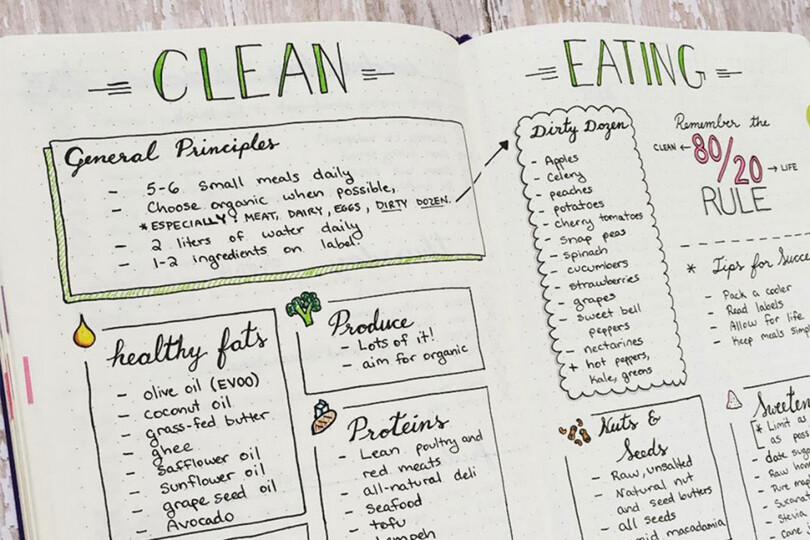 CLEAN
EATING
General Principles
- 5-6 small meals daily
- Choose organic when possible,
*ESPECIALLY: MEAT, DAIRY, EGGS, DIRTY DOZEN.
- 2 liters of water daily
- 1-2 ingredients on label
healthy fats
- olive oil (EVOO)
- coconut oil
- grass-fed butter
- ghee
- safflower oil
- sunflower oil
- grape seed oil
- Avocado
Produce
- Lots of it!
- aim for organic
Proteins
- Lean poultry and
red meats
- all-natural deli
- seafood
- tofu
- tempeh
Dirty Dozen
- Apples
- Celery
- peaches
- potatoes
- cherry tomatoes
- snap peas
- spinach
- cucumbers
- strawberries
- grapes
- sweet bell
peppers
- nectarines
+ hot peppers,
kale, greens
Remember the
CLEAN ← 80/20 → LIFE
RULE
* Tips for Succe
- Pack a cooler
- Read labels
- Allow for life
- Keep meals simp
Nuts &
Seeds
- Raw, unsalted
- Natural nut
and seed butters
- all seeds
macadamia
Sweeten
* Limit as
as poss
- date suga
- Raw hon
- Pure map
- Sucana
- Stevia
- Cane